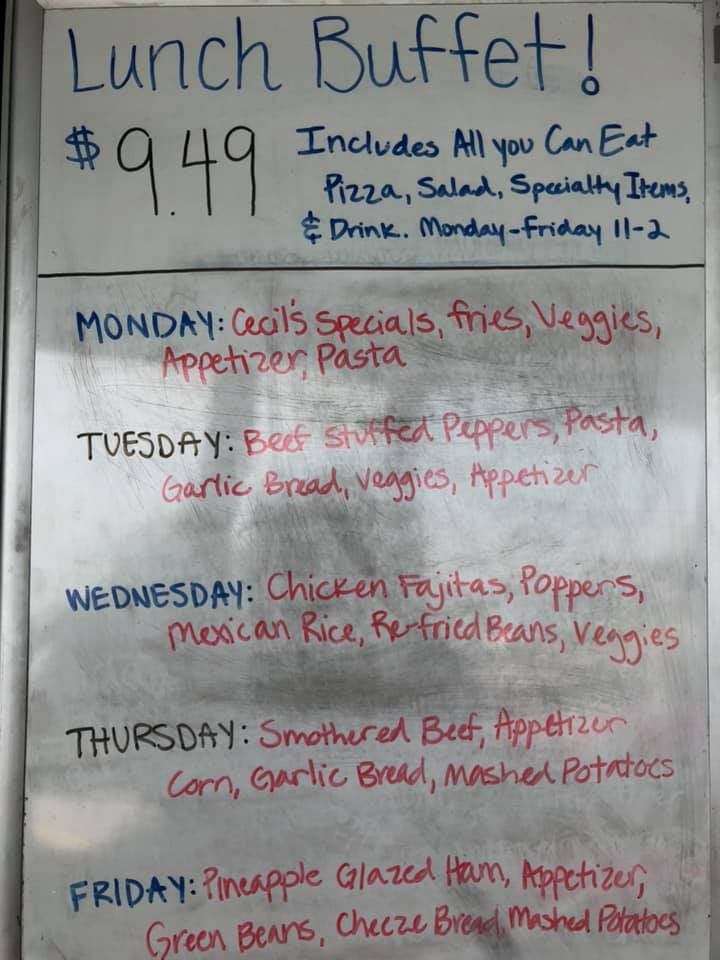 Lunch Buffet!
$9.49 Includes All you Can Eat
Pizza, Salad, Specialty Items,
& Drink. Monday-Friday 11-2
MONDAY: Cecil's Specials, fries, Veggies,
Appetizer, Pasta
TUESDAY: Beef Stuffed Peppers, Pasta,
Garlic Bread, Veggies, Appetizer
WEDNESDAY: Chicken Fajitas, Poppers,
Mexican Rice, Re-fried Beans, Veggies
THURSDAY: Smothered Beef, Appetizer
Corn, Garlic Bread, Mashed Potatoes
FRIDAY: Pineapple Glazed Ham, Appetizer,
Green Beans, Cheeze Bread, Mashed Potatoes